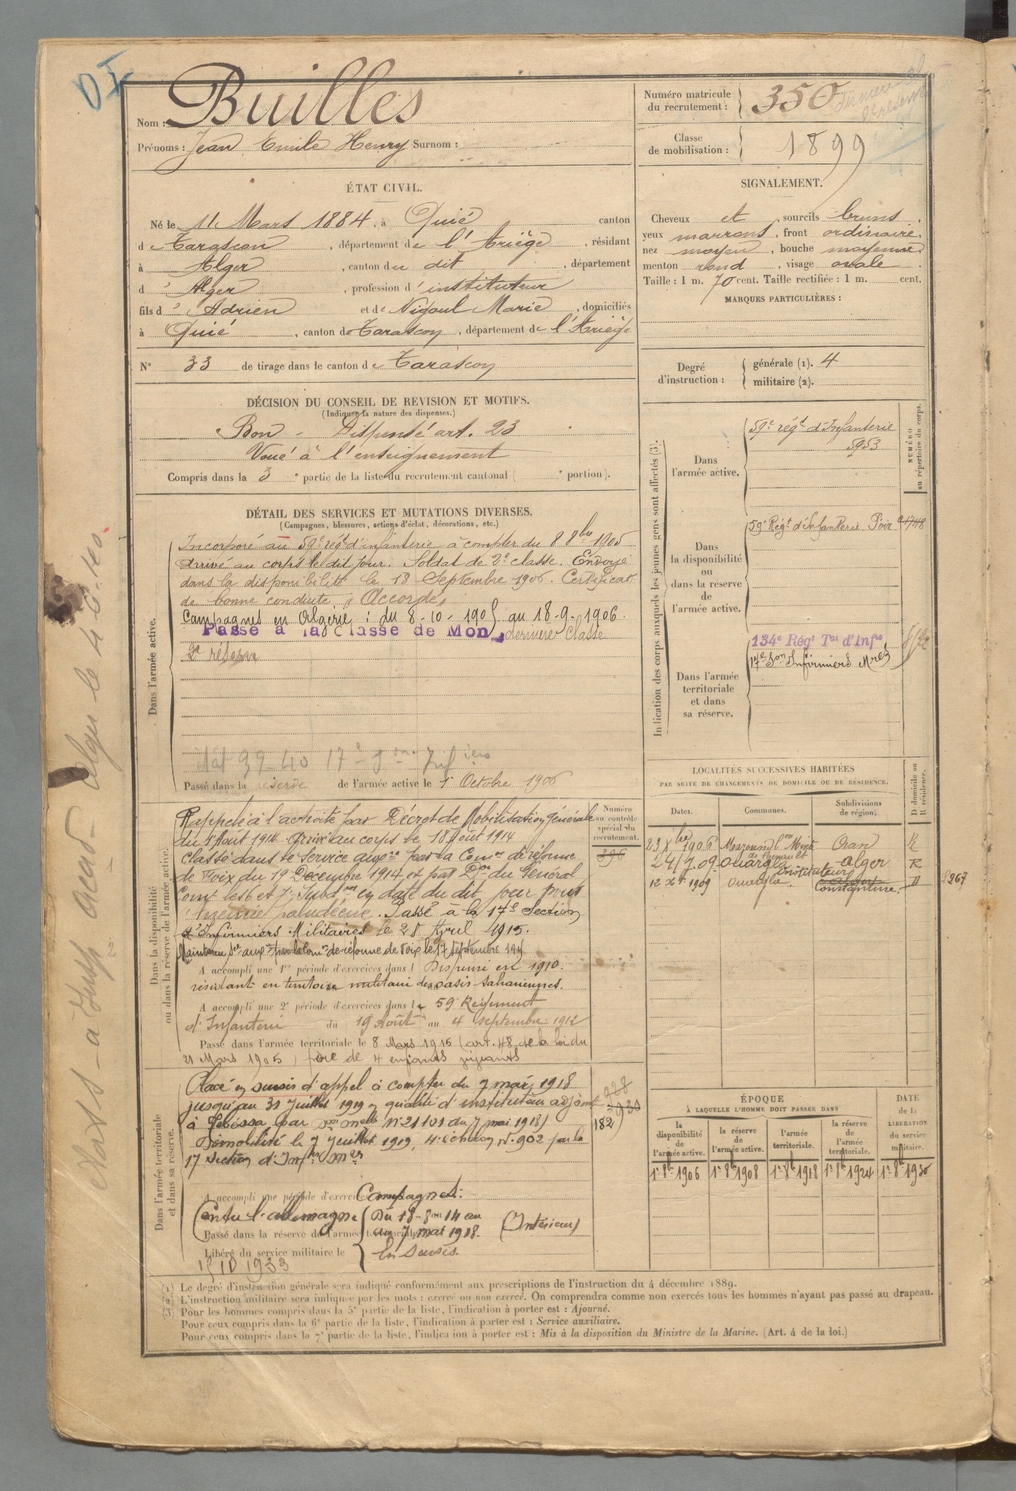 Nom : Builles
Prénoms : Jean Emile Henry Surnom :
Numéro matricule du recrutement : 350
Classe de mobilisation : 1899
ÉTAT CIVIL.
Né le 11 Mars 1884, à Quié canton
d e Tarascon, département de l'Ariège, résidant
à Alger, canton du dit, département
d' Alger, profession d'instituteur
fils d' Adrien et de Nigoul Marie, domiciliés
à Quié, canton de Tarascon, département de l'Ariège
N° 33 de tirage dans le canton de Tarascon
SIGNALEMENT.
Cheveux et, sourcils bruns,
yeux marrons, front ordinaire,
nez moyen, bouche moyenne,
menton rond, visage ovale.
Taille : 1 m. 70 cent. Taille rectifiée : 1 m. cent.
MARQUES PARTICULIÈRES :
Degré d'instruction : générale (1). 4
militaire (2).
DÉCISION DU CONSEIL DE REVISION ET MOTIFS.
(Indiquer la nature des dispenses.)
Bon - Dispensé art. 23
Voué à l'enseignement
Compris dans la 3e partie de la liste du recrutement cantonal ( e portion).
DÉTAIL DES SERVICES ET MUTATIONS DIVERSES.
(Campagnes, blessures, actions d'éclat, décorations, etc.)
Dans l'armée active.
Incorporé au 59e régt d'infanterie à compter du 8 8bre 1905
arrivé au corps le dit jour. Soldat de 2e classe. Envoyé
dans la disponibilité le 18 Septembre 1906. Certificat
de bonne conduite "Accordé"
Campagnes en Algérie : du 8-10-1905 au 18-9-1906.
Passé à la classe de Mon dernière classe
2e réserve
Passé dans la réserve de l'armée active le 1er Octobre 1906
Indication des corps auxquels les jeunes gens sont affectés (3).
NUMÉRO au répertoire du corps.
Dans l'armée active.
59e régt d'Infanterie
5953
Dans la disponibilité ou dans la réserve de l'armée active.
59e Régt d'infanterie Foix
Dans l'armée territoriale et dans sa réserve.
134e Régt Tal d'Infie
17e Son Infirmiers Mres
LOCALITÉS SUCCESSIVES HABITÉES
PAR SUITE DE CHANGEMENTS DE DOMICILE OU DE RÉSIDENCE.
Dates. Communes. Subdivisions de région. D domicile ou R résidence.
Oran R
4/7.09 Ouargla Alger R
12 Xbre 1909 Ouargla Constantine D
Dans la disponibilité ou dans la réserve de l'armée active.
Numéro au contrôle spécial du recrutement.
396
Rappelé à l'activité par Décret de Mobilisation Générale
du 1er Août 1914. Arrivé au corps le 18 Août 1914
Classé dans le service auxre par la Con de réforme
de Foix du 19 Décembre 1914 et par Don du Général
paludéenne. Passé à la 17e Section
d'Infirmiers Militaires le 28 Avril 1915.
A accompli une 1re période d'exercices dans l Dispensé en 1910.
résidant en territoire militaire des oasis sahariennes.
A accompli une 2e période d'exercices dans le 59e Régiment
d'Infanterie du 19 Août au 4 septembre 1912
Passé dans l'armée territoriale le 8 Mars 1915 (art. 48 de la loi du
21 Mars 1905), père de 4 enfants vivants
Dans l'armée territoriale et dans sa réserve.
Placé en sursis d'appel à compter du 7 mai 1918
jusqu'au 31 juillet 1919 en qualité d'instituteur adjoint
à Tébessa (par son melle No 21101 du 7 mai 1918)
Démobilisé le 7 Juillet 1919, 4e échelon No 902 par la
17 section d'Infrs Mres
A accompli une période d'exerci
Campagnes :
Contre l'allemagne
Du 18-8-14 au
au 7 mai 1918. (Intérieur)
En sursis.
Passé dans la réserve de l'armée
Libéré du service militaire le
15 10 1933
ÉPOQUE
À LAQUELLE L'HOMME DOIT PASSER DANS
la disponibilité de l'armée active. la réserve de l'armée active. l'armée territoriale. la réserve de l'armée territoriale. DATE de la LIBÉRATION du service militaire.
1er 8bre 1906 1er 8bre 1908 1er 8bre 1918 1er 8bre 1924 1er 8bre 1930
(1) Le degré d'instruction générale sera indiqué conformément aux prescriptions de l'instruction du 4 décembre 1889.
(2) L'instruction militaire sera indiquée par les mots : exercé ou non exercé. On comprendra comme non exercés tous les hommes n'ayant pas passé au drapeau.
(3) Pour les hommes compris dans la 5e partie de la liste, l'indication à porter est : Ajourné.
Pour ceux compris dans la 6e partie de la liste, l'indication à porter est : Service auxiliaire.
Pour ceux compris dans la 7e partie de la liste, l'indication à porter est : Mis à la disposition du Ministre de la Marine. (Art. 4 de la loi.)